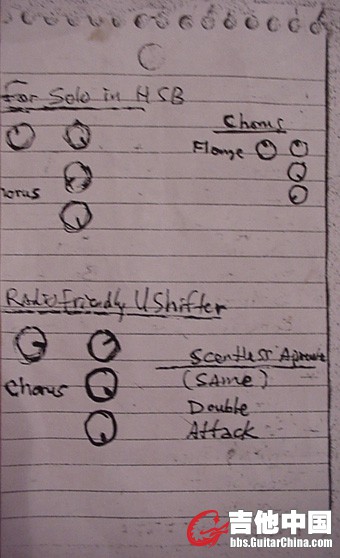 For Solo in HSB
Chorus
Flange
horus
Radio Friendly UShifter
Scentless Aprentie
Chorus
(SAme)
Double
Attack
吉他中国
bbs.GuitarChina.com